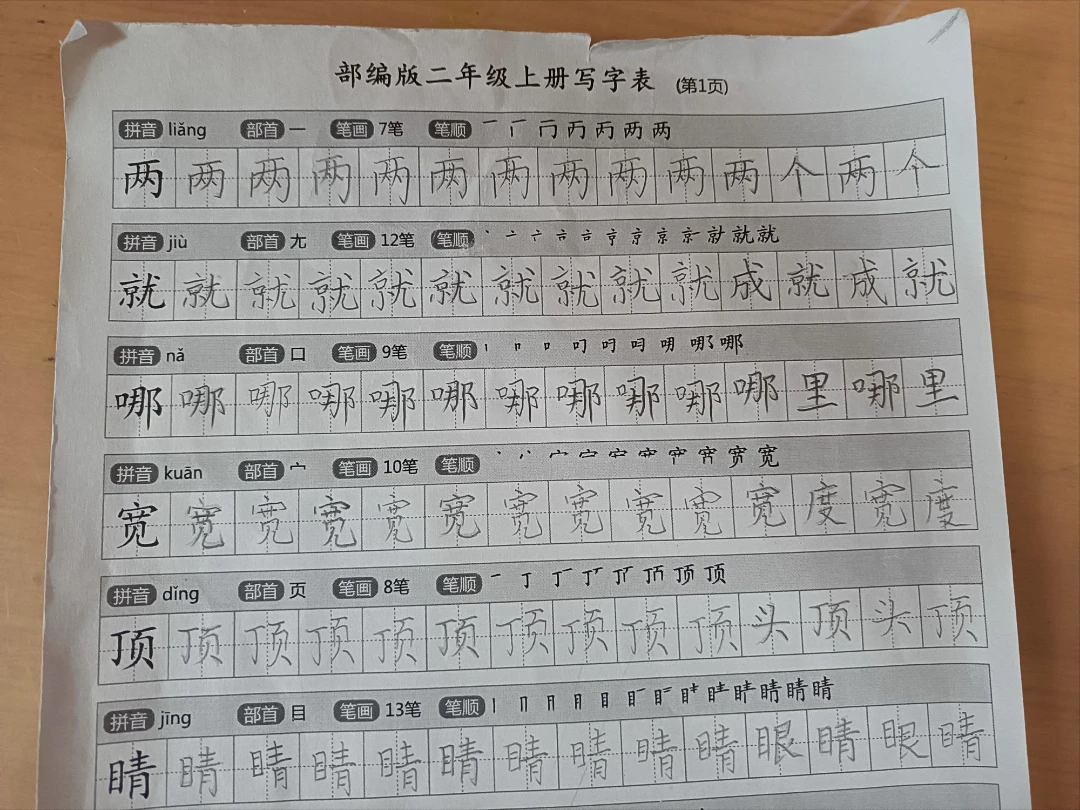 部编版二年级上册写字表 (第1页)
拼音 liǎng 部首 一 笔画 7笔 笔顺 一 丙 两 两
两 两 两 两 两 两 两 两 两 两 两 个 两 个
拼音 jiù 部首 尢 笔画 12笔 笔顺 丶 亠 京 就 就
就 就 就 就 就 就 就 就 就 就 成 就 成 就
拼音 nǎ 部首 口 笔画 9笔 笔顺 丨 口 叼 哪 哪
哪 哪 哪 哪 哪 哪 哪 哪 哪 哪 哪 里 哪 里
拼音 kuān 部首 宀 笔画 10笔 笔顺 丶 宀 宽 宽
宽 宽 宽 宽 宽 宽 宽 宽 宽 宽 宽 度 宽 度
拼音 dǐng 部首 页 笔画 8笔 笔顺 一 丁 顶 顶
顶 顶 顶 顶 顶 顶 顶 顶 顶 顶 头 顶 头 顶
拼音 jīng 部首 目 笔画 13笔 笔顺 丨 目 睛 睛 睛
睛 睛 睛 睛 睛 睛 睛 睛 睛 睛 眼 睛 眼 睛